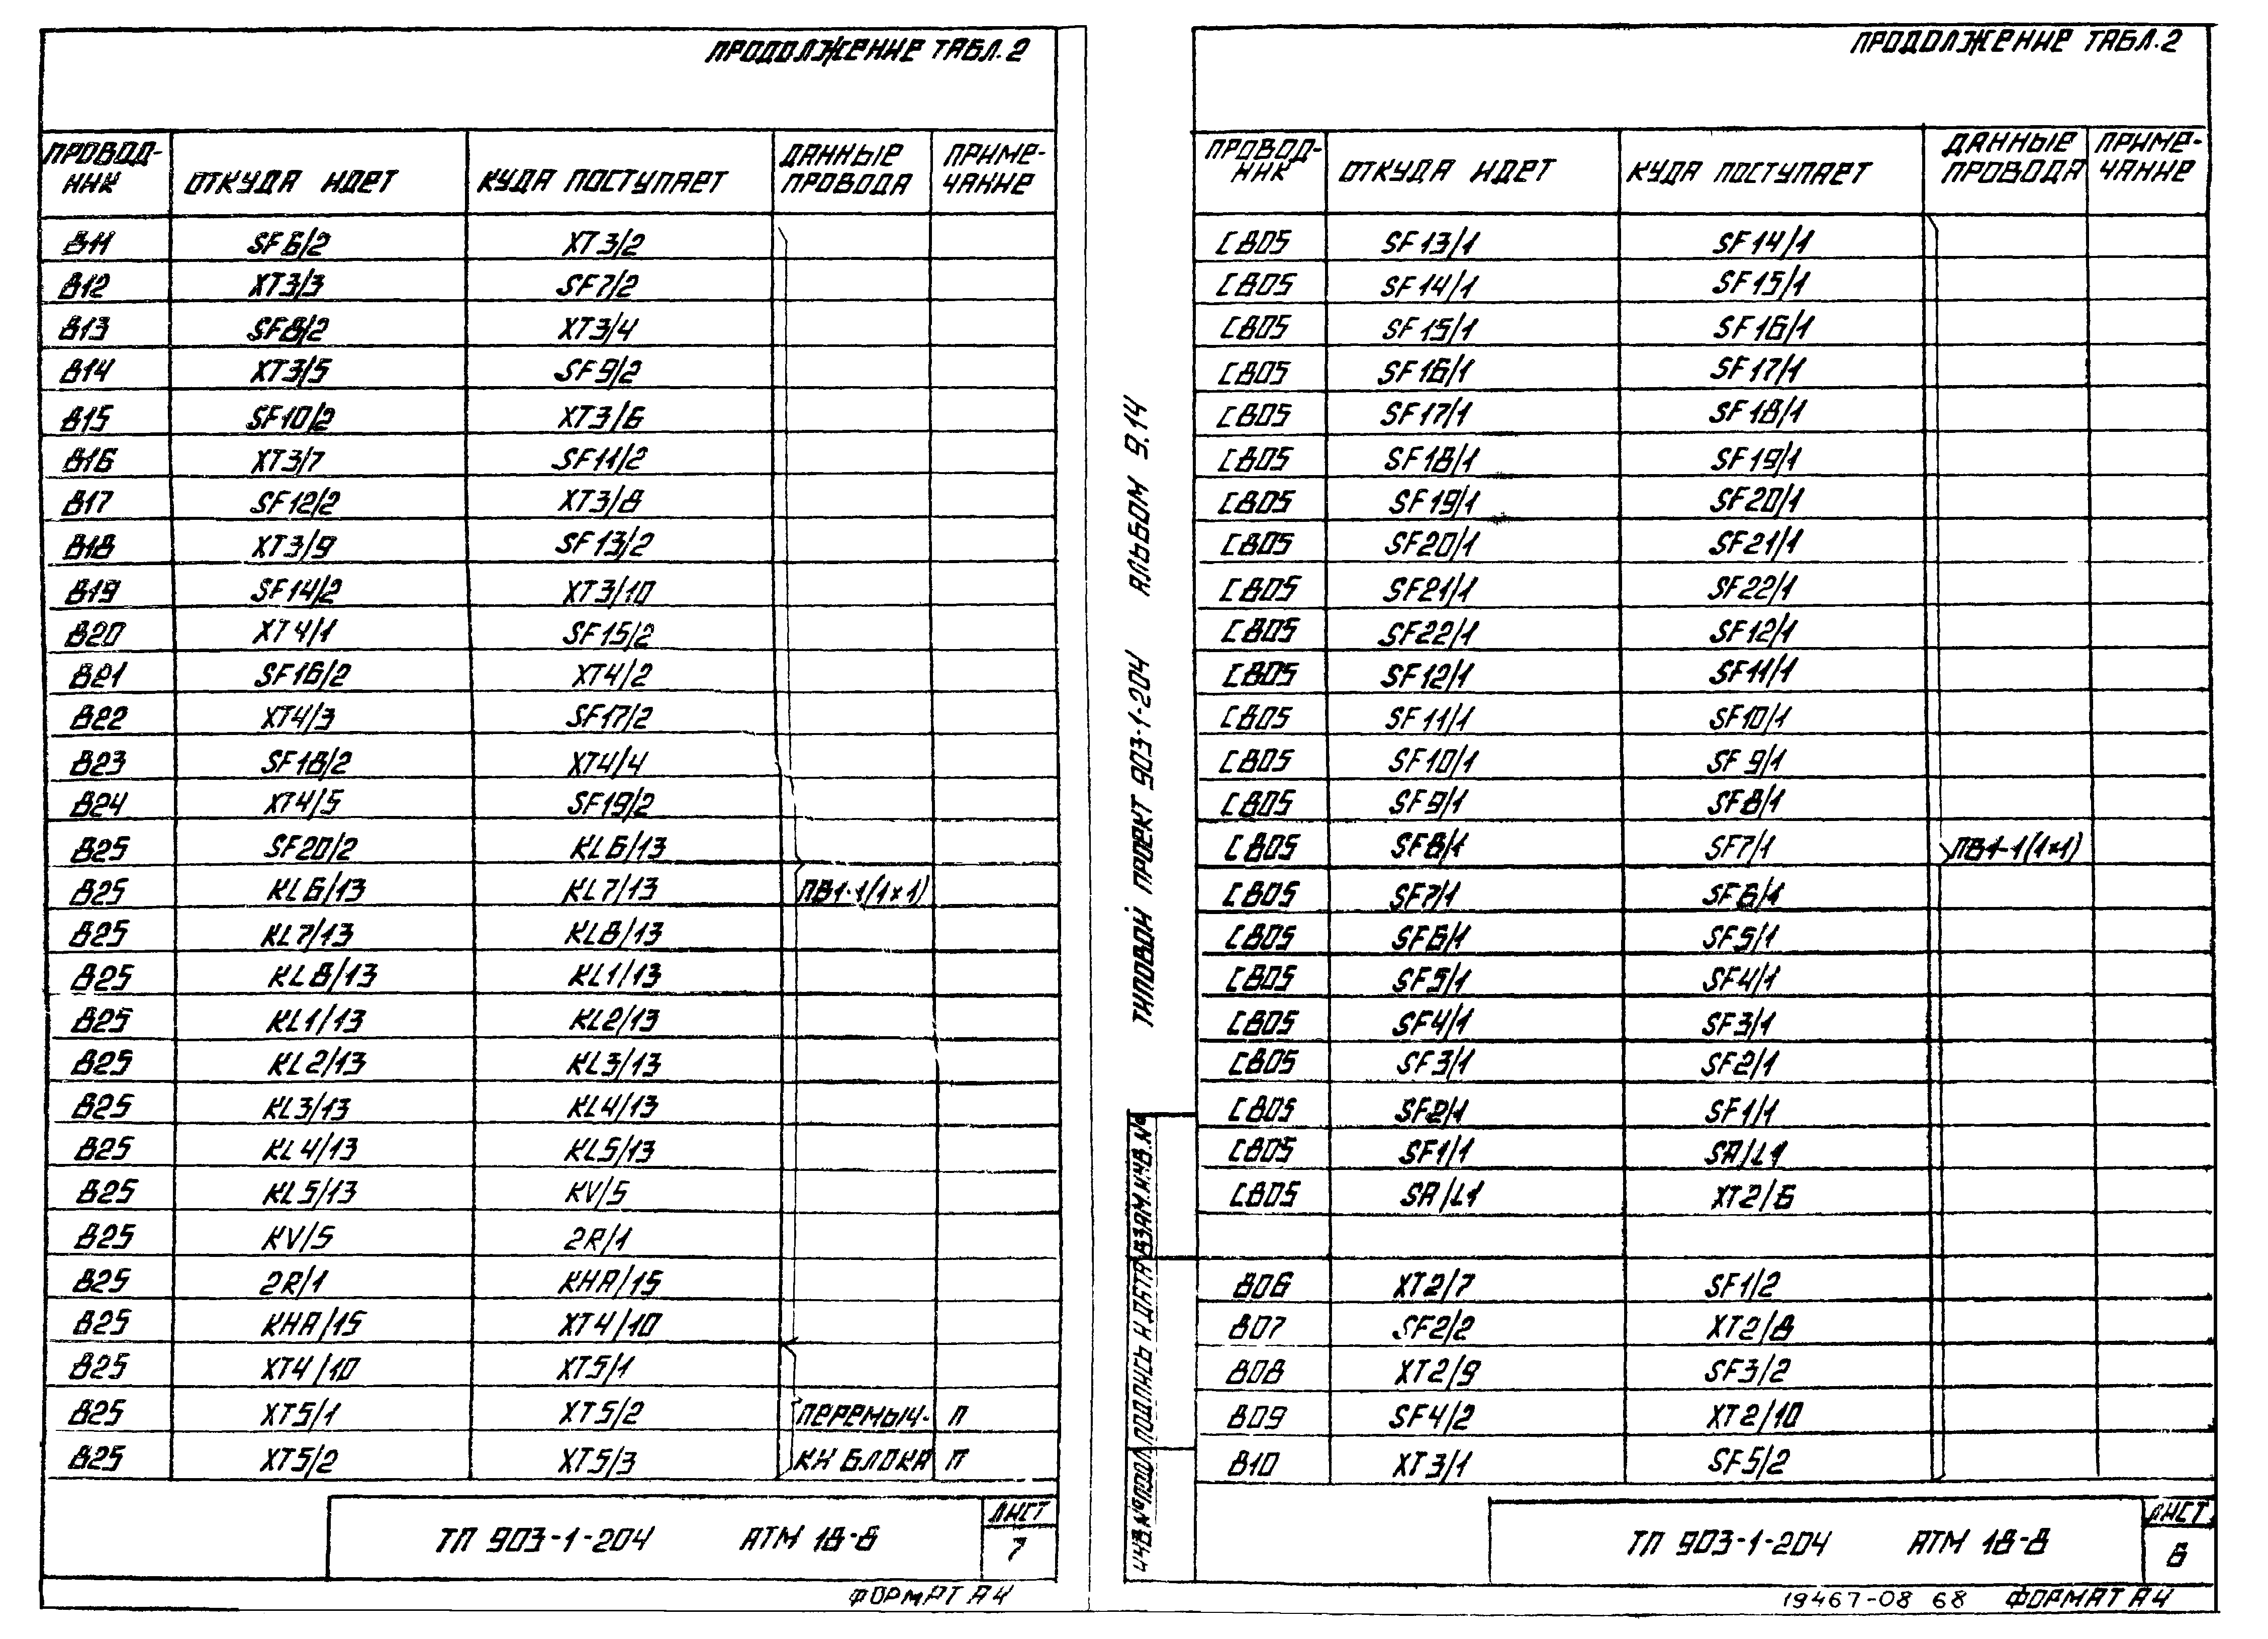 ПРОДОЛЖЕНИЕ ТАБЛ.2
ПРОВОД-НИК ОТКУДА ИДЕТ КУДА ПОСТУПАЕТ ДАННЫЕ ПРОВОДА ПРИМЕ-ЧАНИЕ
811 SF6/2 XT3/2
812 XT3/3 SF7/2
813 SF8/2 XT3/4
814 XT3/5 SF9/2
815 SF10/2 XT3/6
816 XT3/7 SF11/2
817 SF12/2 XT3/8
818 XT3/9 SF13/2
819 SF14/2 XT3/10
820 XT4/1 SF15/2
821 SF16/2 XT4/2
822 XT4/3 SF17/2
823 SF18/2 XT4/4
824 XT4/5 SF19/2
825 SF20/2 KL6/13
825 KL6/13 KL7/13 ПВ1-1(1×1)
825 KL7/13 KL8/13
825 KL8/13 KL1/13
825 KL1/13 KL2/13
825 KL2/13 KL3/13
825 KL3/13 KL4/13
825 KL4/13 KL5/13
825 KL5/13 KV/5
825 KV/5 2R/1
825 2R/1 КНА/15
825 КНА/15 XT4/10
825 XT4/10 XT5/1
825 XT5/1 XT5/2 ПЕРЕМЫЧ- П
825 XT5/2 XT5/3 КИ БЛОКА П
ТП 903-1-204 АТМ 18-8 ЛИСТ 7
ФОРМАТ А4
ТИПОВОЙ ПРОЕКТ 903-1-204 АЛЬБОМ 9.14
ИНВ.№ПОДЛ. ПОДПИСЬ И ДАТА ВЗАМ.ИНВ.№
ПРОДОЛЖЕНИЕ ТАБЛ.2
ПРОВОД-НИК ОТКУДА ИДЕТ КУДА ПОСТУПАЕТ ДАННЫЕ ПРОВОДА ПРИМЕ-ЧАНИЕ
C805 SF13/1 SF14/1
C805 SF14/1 SF15/1
C805 SF15/1 SF16/1
C805 SF16/1 SF17/1
C805 SF17/1 SF18/1
C805 SF18/1 SF19/1
C805 SF19/1 SF20/1
C805 SF20/1 SF21/1
C805 SF21/1 SF22/1
C805 SF22/1 SF12/1
C805 SF12/1 SF11/1
C805 SF11/1 SF10/1
C805 SF10/1 SF9/1
C805 SF9/1 SF8/1
C805 SF8/1 SF7/1 ПВ1-1(1×1)
C805 SF7/1 SF6/1
C805 SF6/1 SF5/1
C805 SF5/1 SF4/1
C805 SF4/1 SF3/1
C805 SF3/1 SF2/1
C805 SF2/1 SF1/1
C805 SF1/1 SA/L1
C805 SA/L1 XT2/6
806 XT2/7 SF1/2
807 SF2/2 XT2/8
808 XT2/9 SF3/2
809 SF4/2 XT2/10
810 XT3/1 SF5/2
ТП 903-1-204 АТМ 18-8 ЛИСТ 6
19467-08 68 ФОРМАТ А4